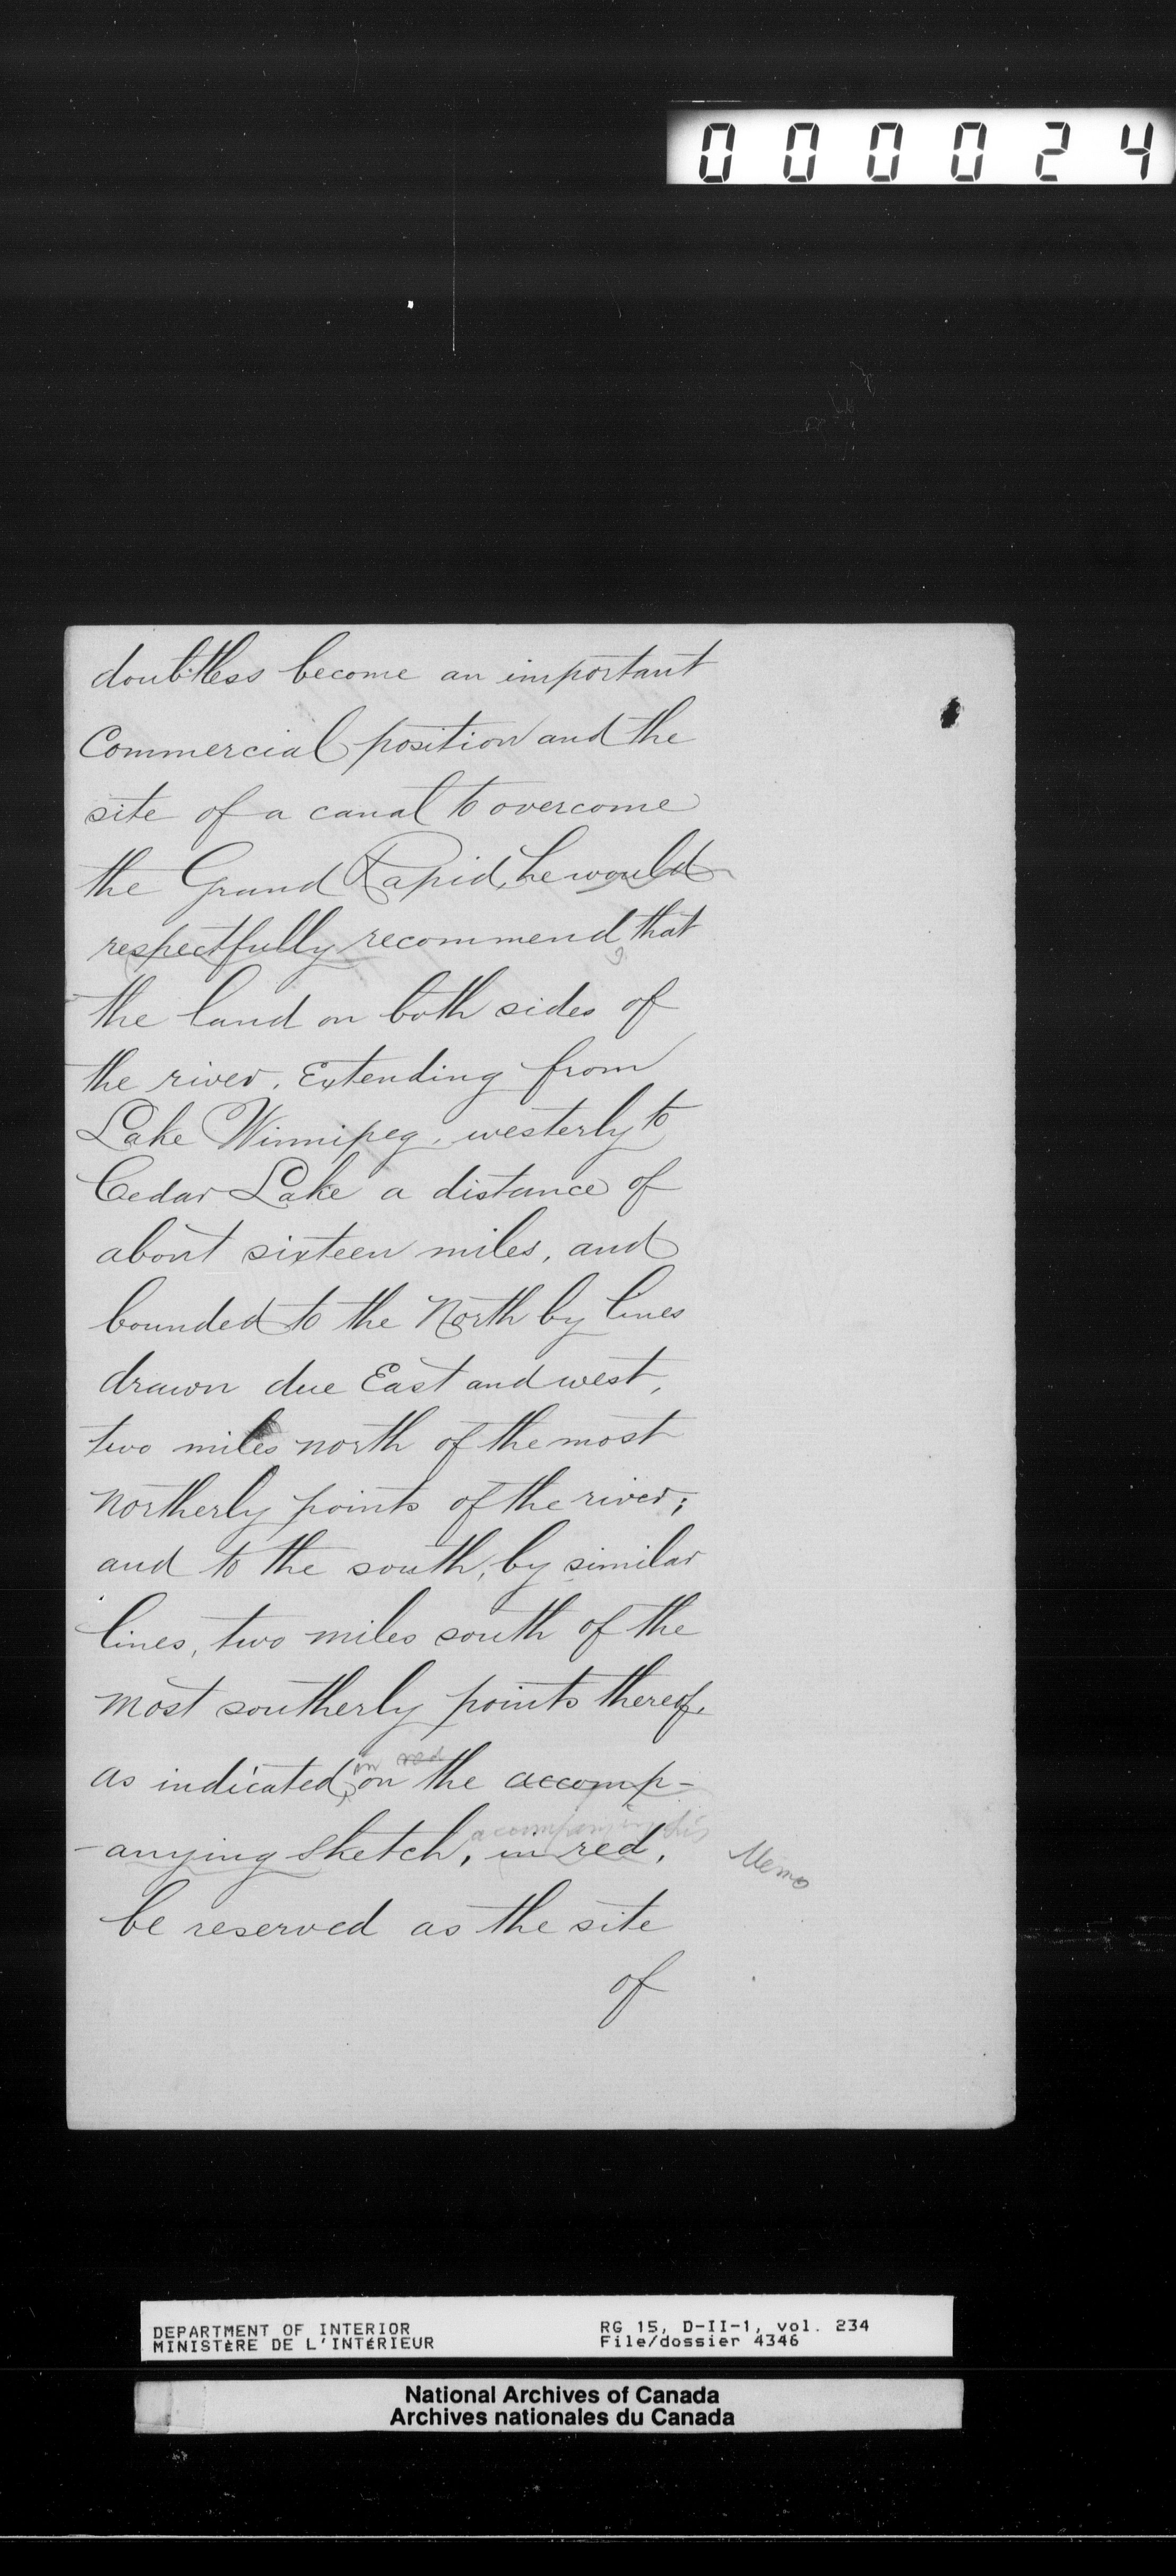 000024
doubtless become an important
Commercial position and the
site of a canal to overcome
the Grand Rapid, he would
respectfully recommend that
the land on both sides of
the river, Extending from
Lake Winnipeg, westerly to
Cedar Lake a distance of
about sixteen miles, and
bounded to the North by lines
drawn due East and west,
two miles north of the most
Northerly points of the river;
and to the south, by similar
lines, two miles south of the
most southerly points thereof,
in red
as indicated on the accomp-
accompanying this
-anying sketch, in red, Memo
be reserved as the site
of
DEPARTMENT OF INTERIOR RG 15, D-II-1, vol. 234
MINISTÈRE DE L'INTÉRIEUR File/dossier 4346
National Archives of Canada
Archives nationales du Canada